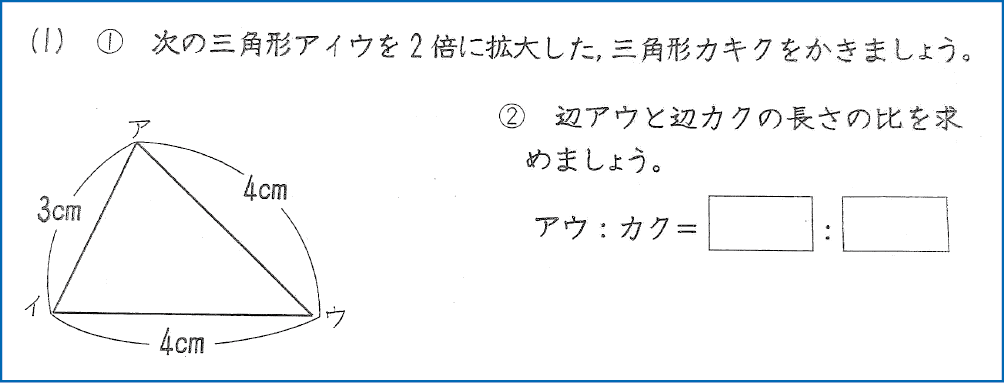 (1) ① 次の三角形アイウを2倍に拡大した,三角形カキクをかきましょう。
② 辺アウと辺カクの長さの比を求
めましょう。
ア
4cm
3cm
アウ:カク=　:
イ
ウ
4cm